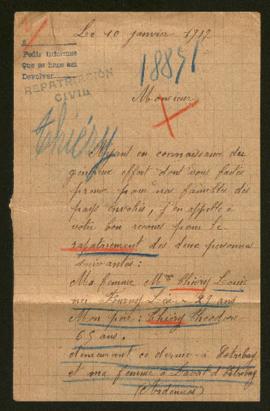 Le 10 janvier 1917.
Pedir informes
Que se hizo así
Devolver
REPATRIACIÓN
CIVIL
18851
Monsieur
Thiéry
Ayant eu connaissance des
généreux effort dont vous faites
preuve pour nos familles des
pays envahis, j'en appelle à
votre bon pour le
rapatriement des deux personnes
suivantes:
Ma femme Mme Thiéry Louis
née 27 ans
Mon père: Thiéry Théodore
65 ans.
demeurant ce dernier à
et ma femme à
(Ardennes)